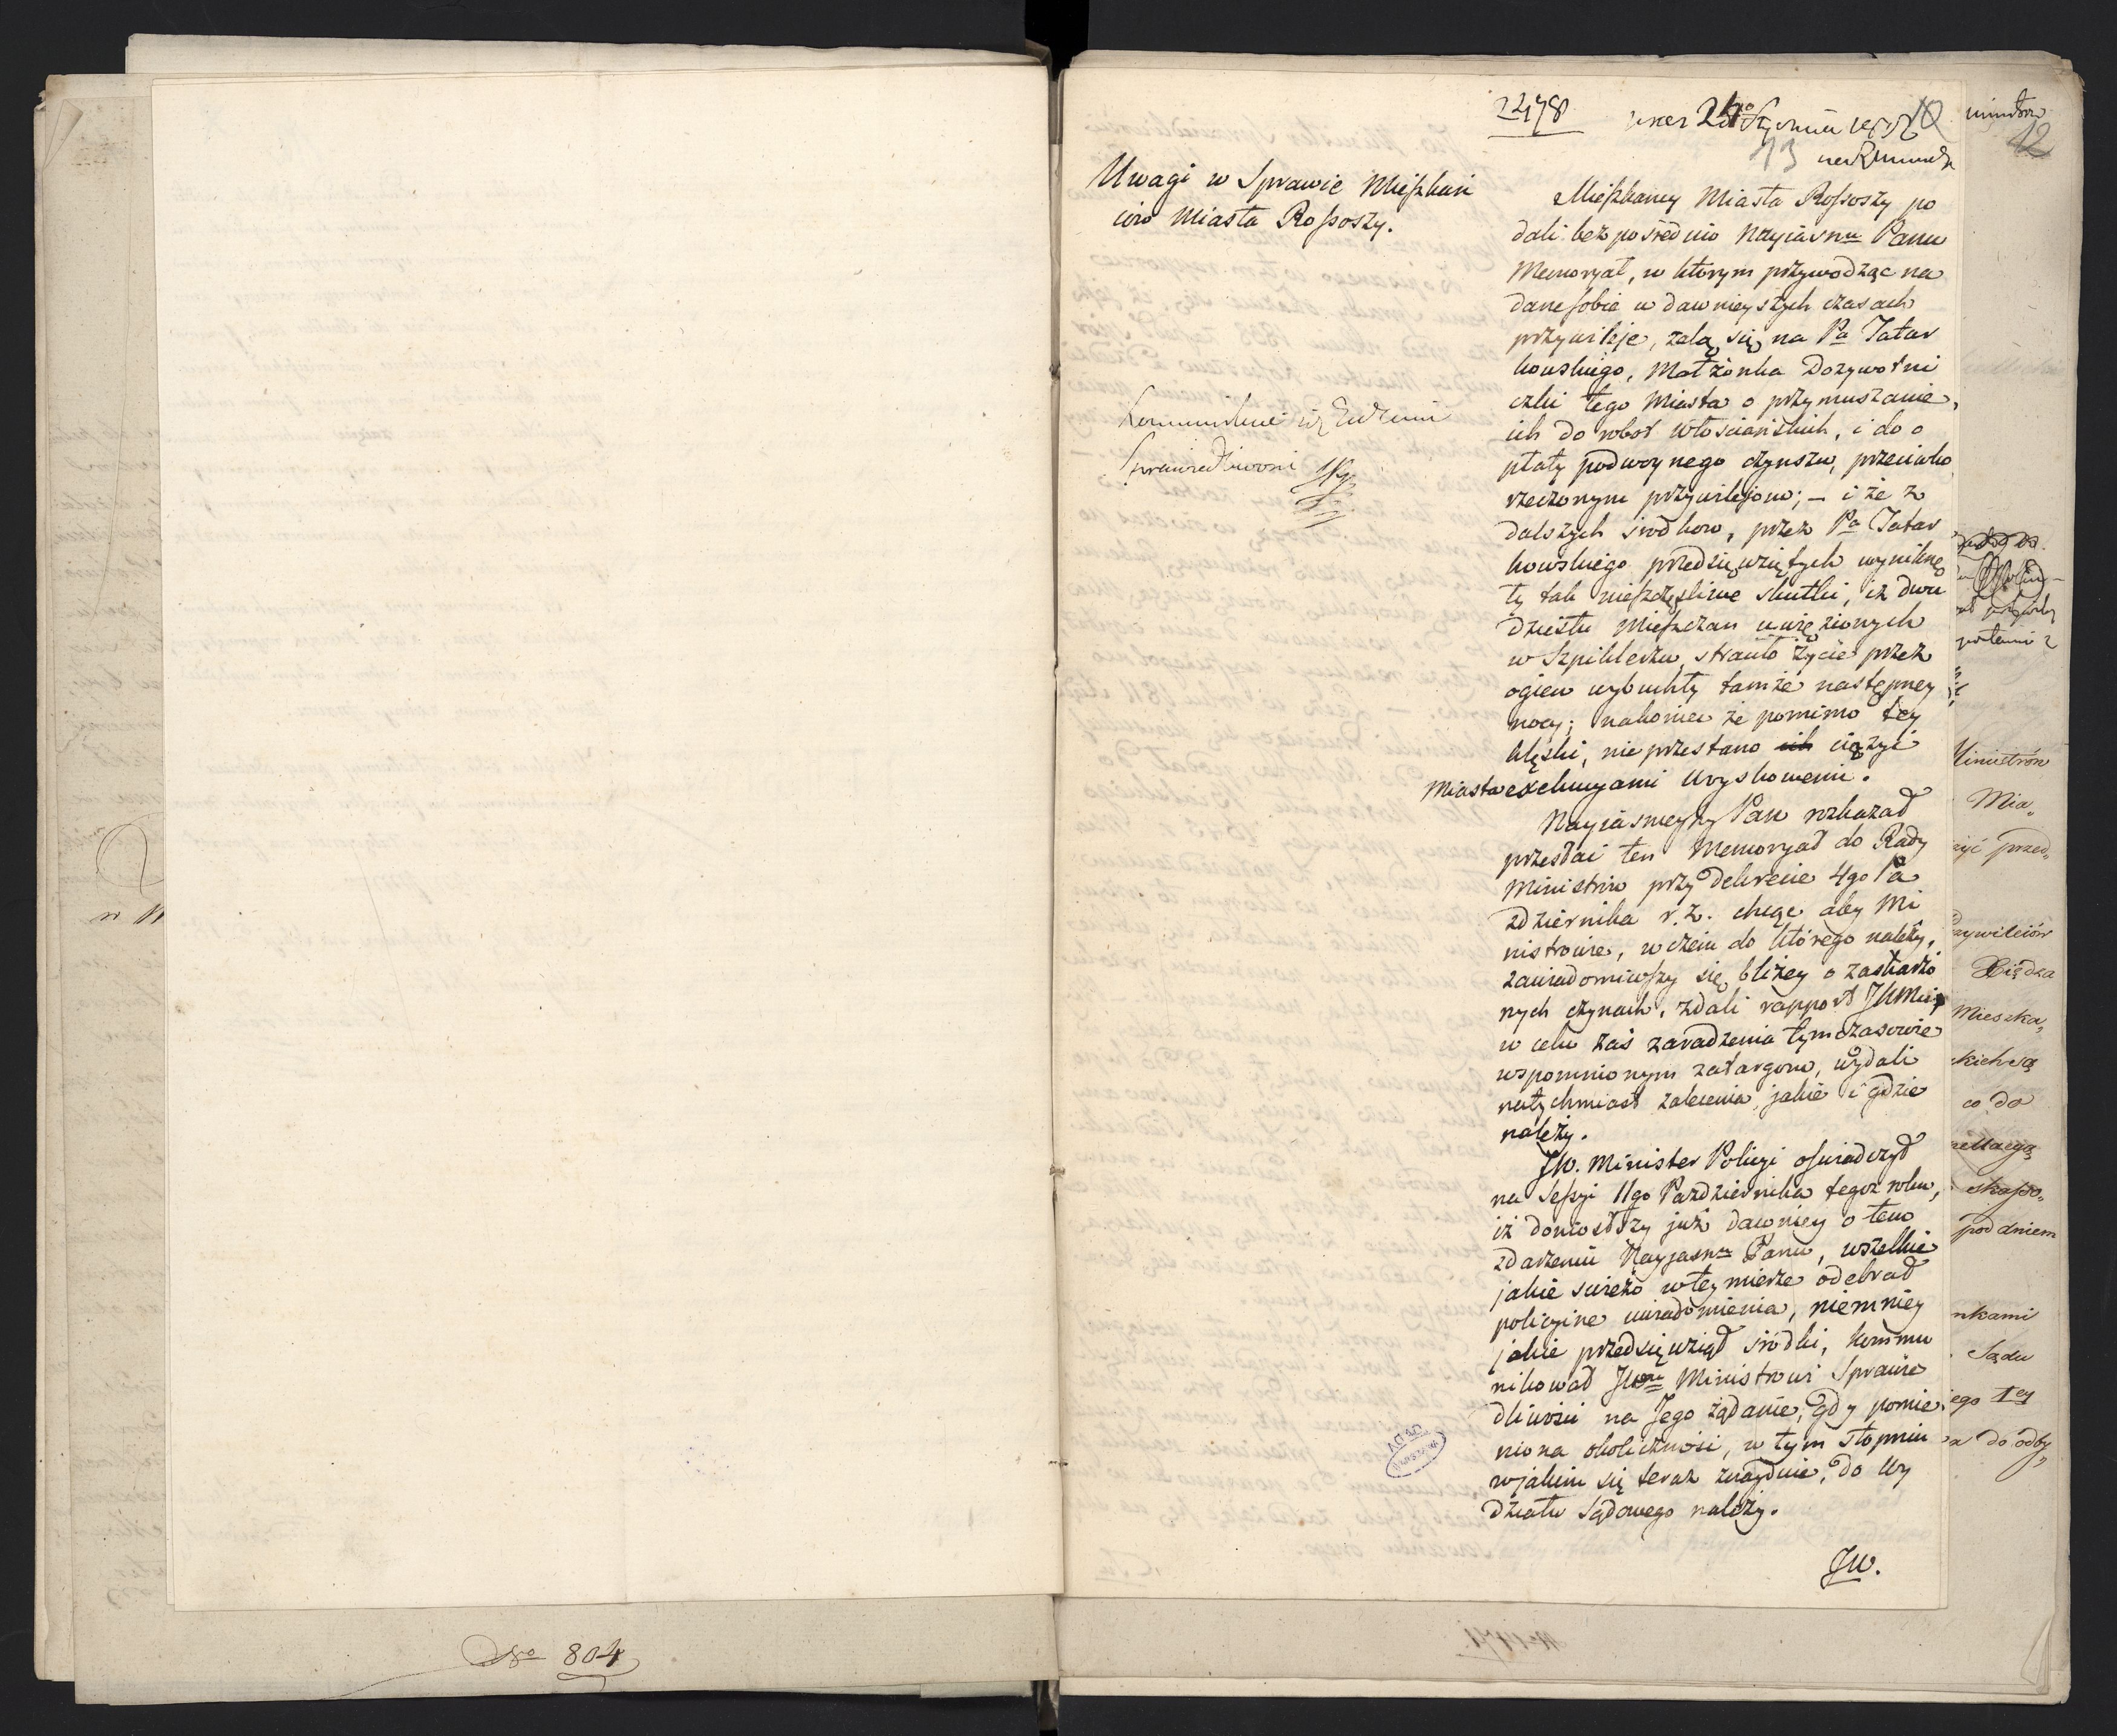 2478
13
Uwagi w Sprawie Mieszkań
ców Miasta Rossoszy.
Mieszkancy Miasta Rossoszy po
dali bezpośrednio Nayiasnu Panu
Memoryał, w ktorym przywodząc na
dane sobie w dawnieyszych czasach
przywileje, żalą się na Pa Tatar
kowskiego, Małżonka Dożywotni
czki tego Miasta o przymuszanie,
ich do robot włościańskich, i do o
płaty podwoynego czynszu, przeciwko
rzeczonym przywilejom; – i że z
dalszych srodkow, przez Pa Tatar
kowskiego przedsięwziętych wyniknę
ły tak nieszczęsliwe skutki, iż dwu
dziestu Mieszczan uwięzionych
w Szpiklerzu, straciło życie przez
ogień wybuchły tamże następney
nocy; nakoniec że pomimo tey
klęski, nie przestano ich ciążyć
Miasta exekucyami Woyskowemi.
Nayiasnieyszy Pan rozkazał
przesłać ten Memoryał do Rady
Ministrów przy Dekrecie 4go Pa
zdziernika r.z. chcąc aby Mi
nistrowie, w czem do którego należy,
zawiadomiwszy się bliżey o zaskarżo
nych czynach, zdali rapport JKMci,
w celu zaś zaradzenia tymczasowie
wspomnionym zatargom, wydali
natychmiast zalecenia, jakie i gdzie
należy.
JW. Minister Policyi oświadczył
na Sessyi 11go Pazdziernika tegoż roku,
iż doniosłszy już dawniey o tem
zdarzeniu Nayjasnu Panu, wszelkie
jakie swieżo w tey mierze odebrał
policyine uwiadomienia, niemniey
jakie przedsięwziął środki, kommu
nikował JWmu Ministrowi Sprawie
dliwości na Jego żądanie, gdy pomie
niona okoliczność, w tym stopniu
w jakim się teraz znayduie, do Wy
działu Sądowego należy.
JW.
Sprawiedliwości
12
Ministrów
Mia„
przed„
Xiędza
Mieszka„
co do
pod dniem
nkami
Sądu
ego 1ey
do odby„
No 804